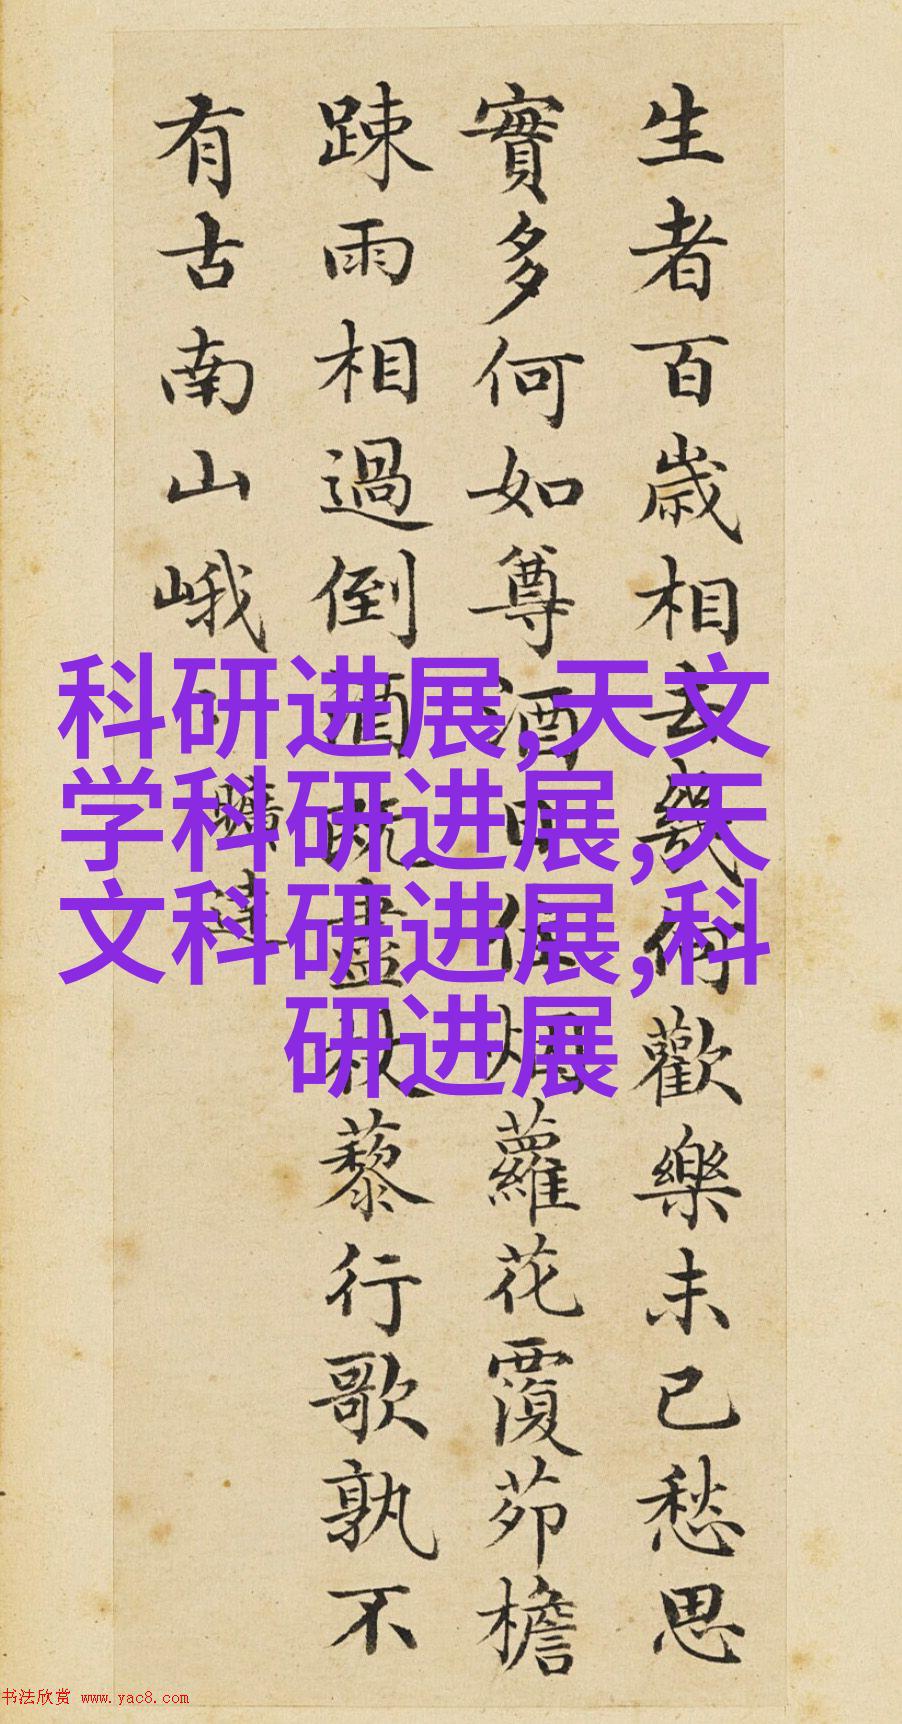 生者百歲相去幾何歡樂未已愁思
實多何如尊酒日往烟蘿花覆茆檐
踈雨相過倒酒既盡杖藜行歌孰不
有古南山峨
曠達
科研进展,天文
学科研进展,天
文科研进展,科
研进展
书法欣赏 www.yac8.com